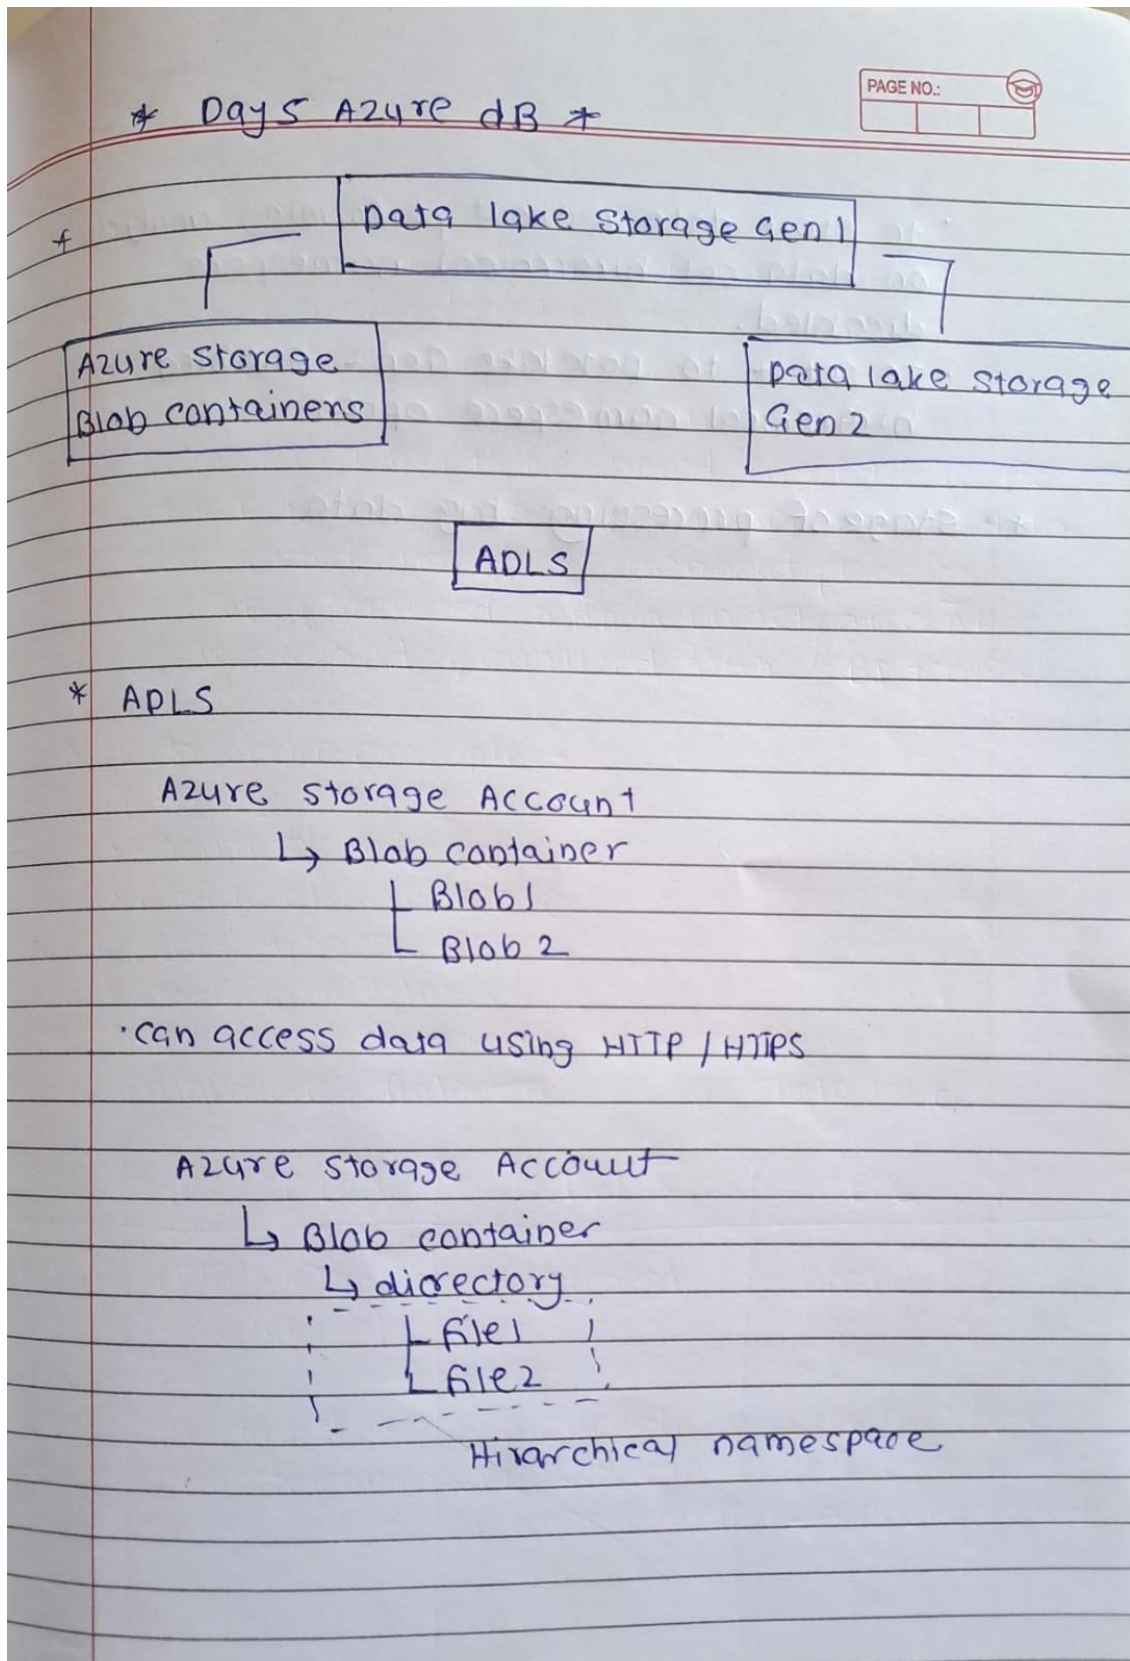 PAGE NO.:
* Day 5 Azure dB *
*
Data lake Storage Gen 1
Azure Storage
Blob containers
Data lake Storage
Gen 2
ADLS
* ADLS
Azure Storage Account
↳ Blob container
Blob 1
Blob 2
· can access data using HTTP / HTTPS
Azure Storage Account
↳ Blob container
↳ directory
file1
file2
Hirarchical namespace